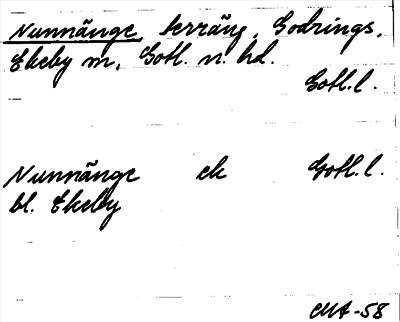 Nunnänge, terräng, Godrings,
Ekeby sn, Gotl. n. hd.
Gotl. l.
Nunnänge ek Gotl. l.
bl. Ekeby
CMA -58